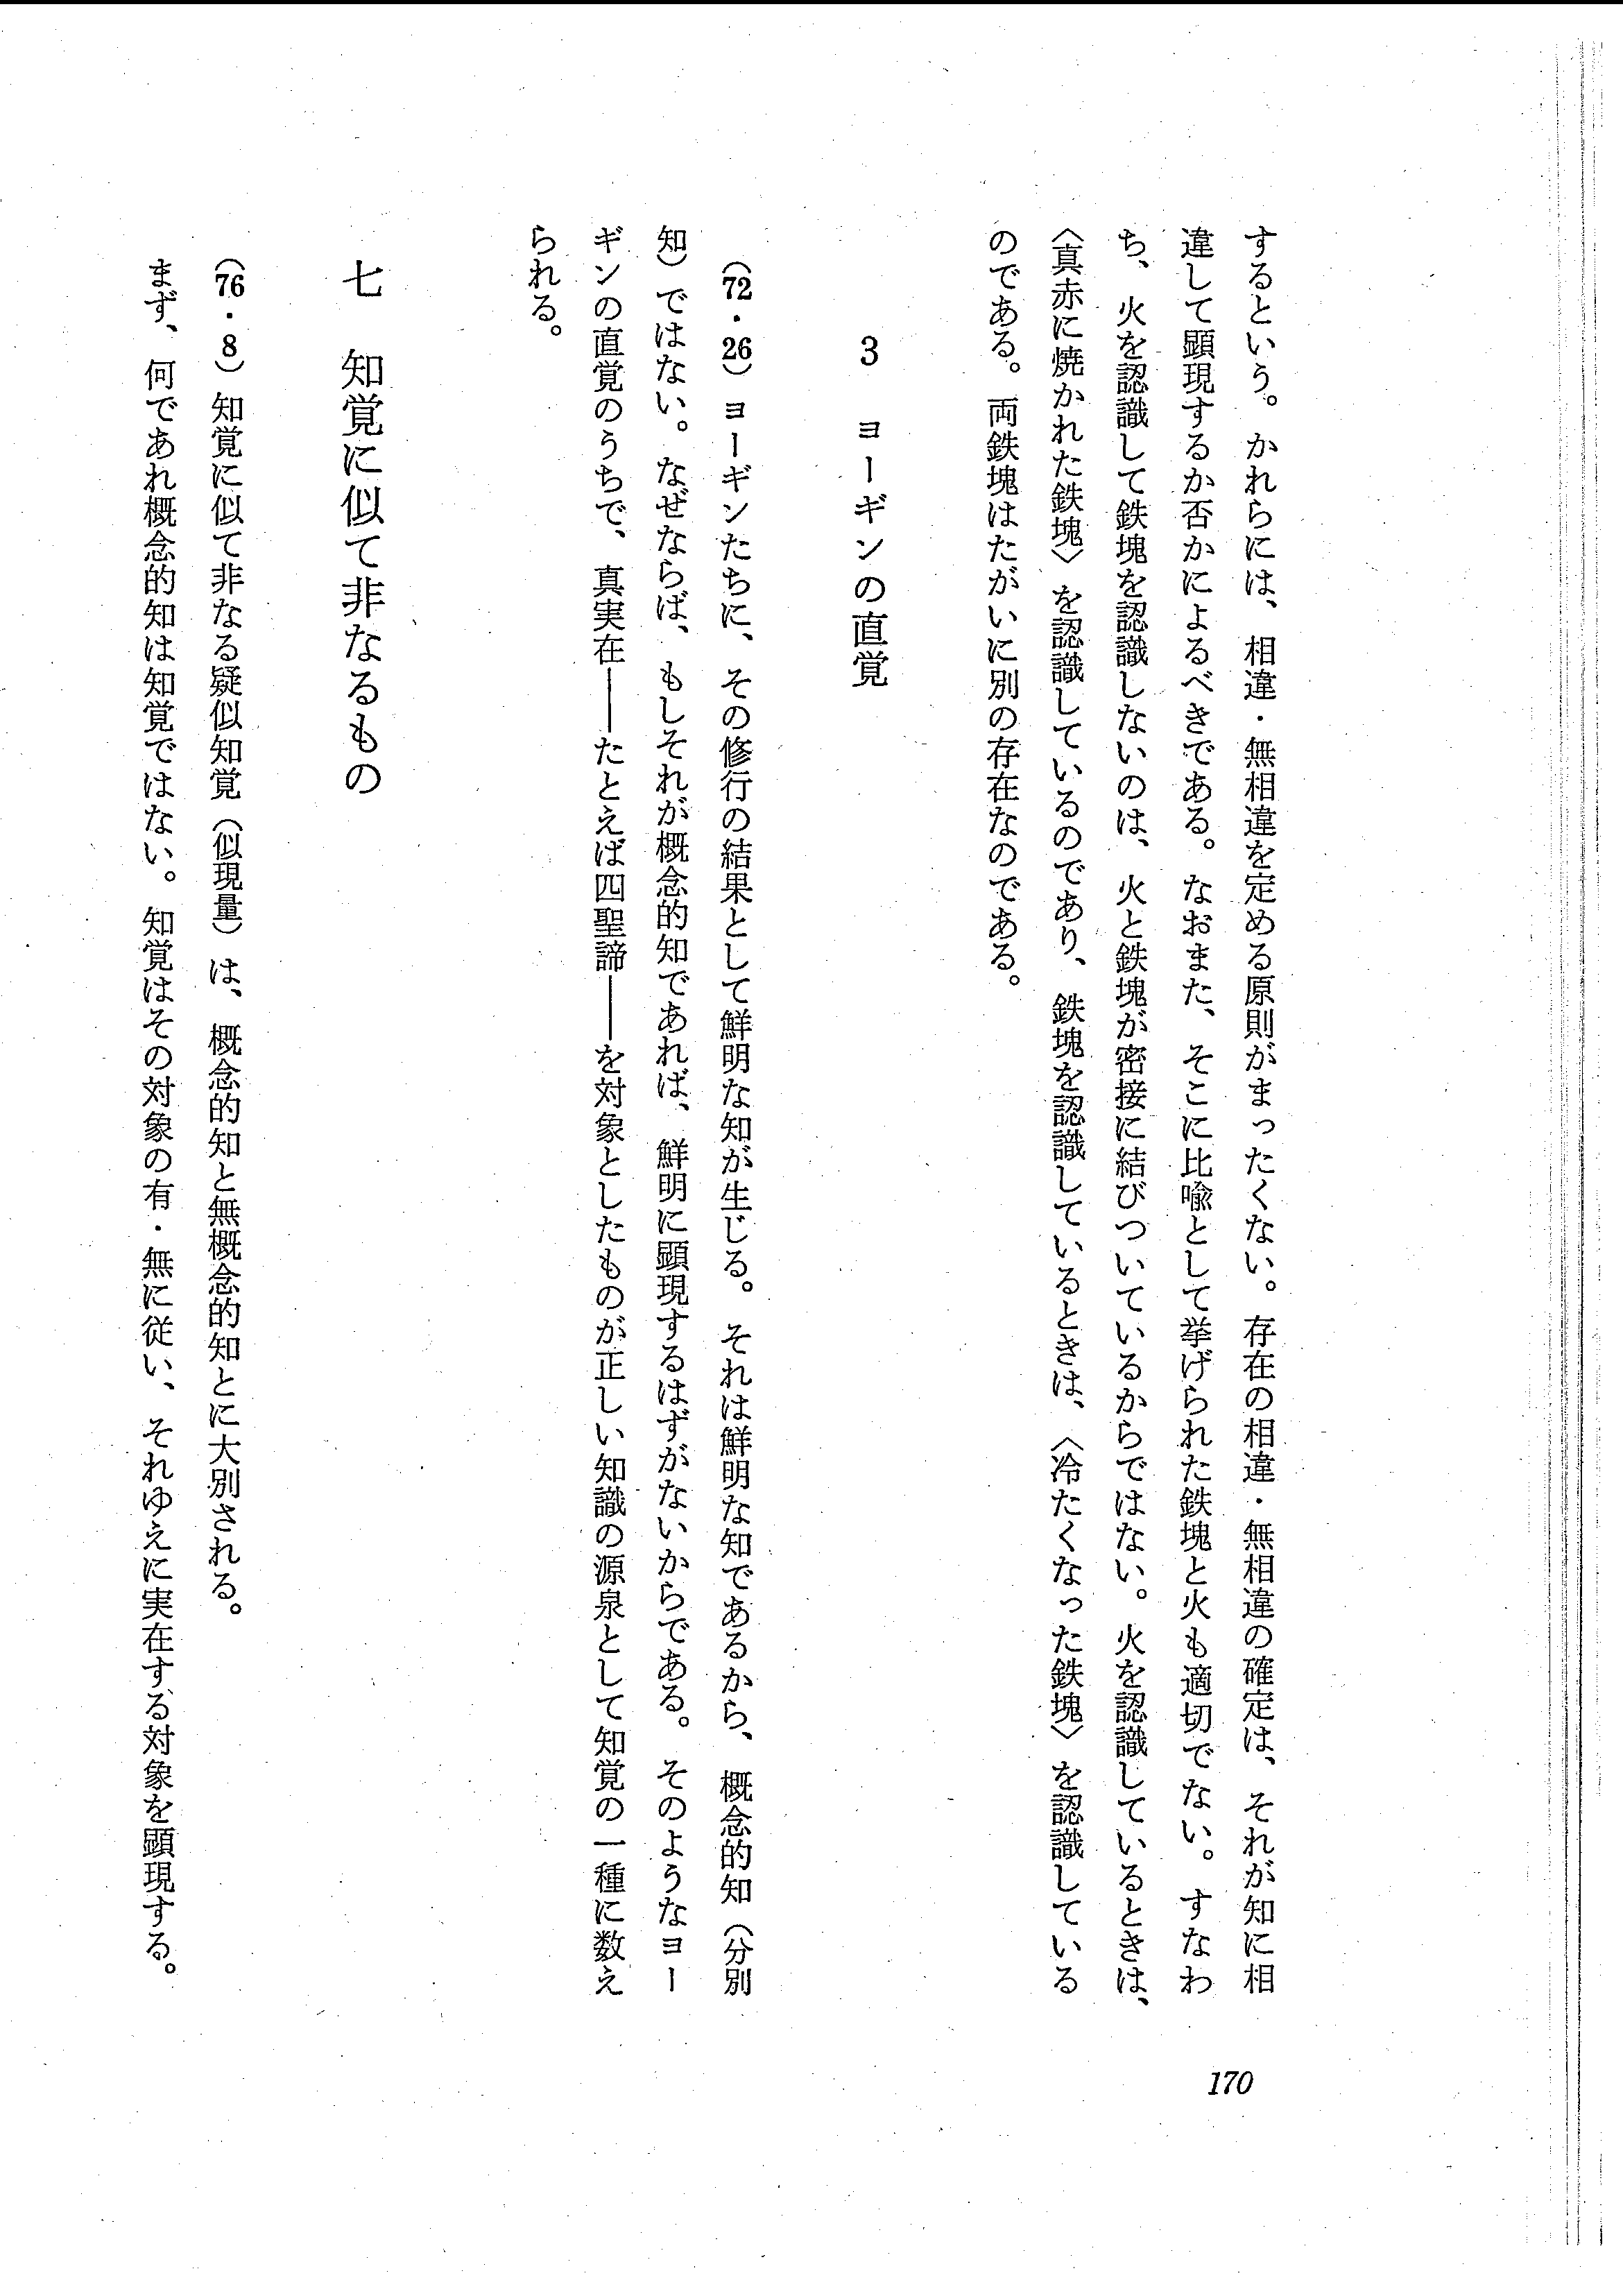 するという。かれらには、相違・無相違を定める原則がまったくない。存在の相違・無相違の確定は、それが知に相
違して顕現するか否かによるべきである。なおまた、そこに比喩として挙げられた鉄塊と火も適切でない。すなわ
ち、火を認識して鉄塊を認識しないのは、火と鉄塊が密接に結びついているからではない。火を認識しているときは、
〈真赤に焼かれた鉄塊〉を認識しているのであり、鉄塊を認識しているときは、〈冷たくなった鉄塊〉を認識している
のである。両鉄塊はたがいに別の存在なのである。
3 ヨーギンの直覚
(72・26) ヨーギンたちに、その修行の結果として鮮明な知が生じる。それは鮮明な知であるから、概念的知(分別
知)ではない。なぜならば、もしそれが概念的知であれば、鮮明に顕現するはずがないからである。そのようなヨー
ギンの直覚のうちで、真実在——たとえば四聖諦——を対象としたものが正しい知識の源泉として知覚の一種に数え
られる。
七 知覚に似て非なるもの
(76・8) 知覚に似て非なる疑似知覚(似現量)は、概念的知と無概念的知とに大別される。
まず、何であれ概念的知は知覚ではない。知覚はその対象の有・無に従い、それゆえに実在する対象を顕現する。
170